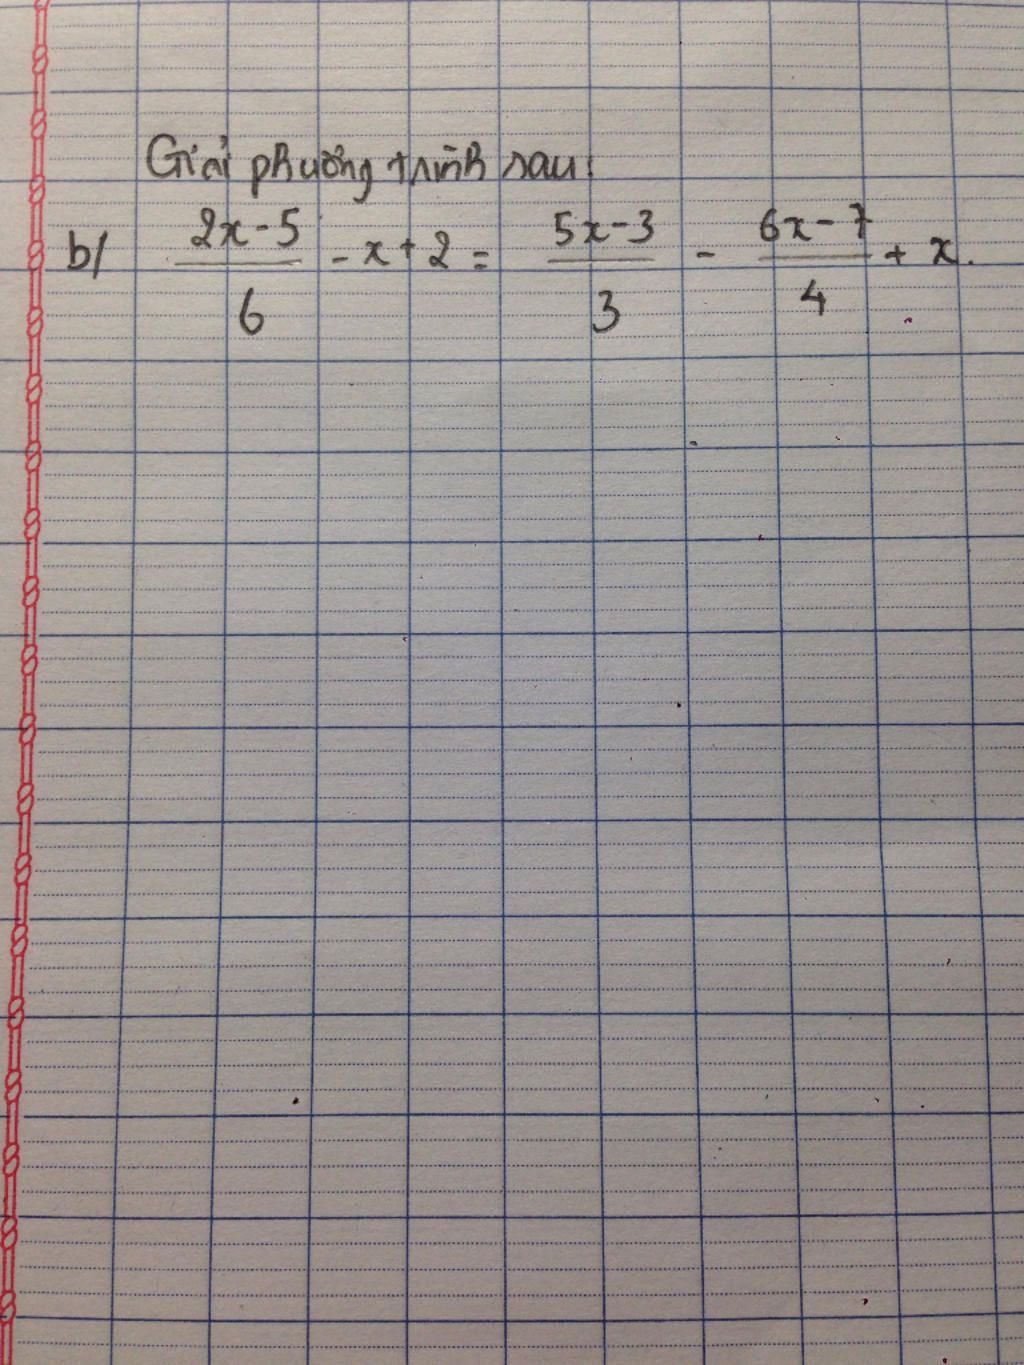 Giải phương trình sau:
b/ \frac{2x-5}{6} - x + 2 = \frac{5x-3}{3} - \frac{6x-7}{4} + x.